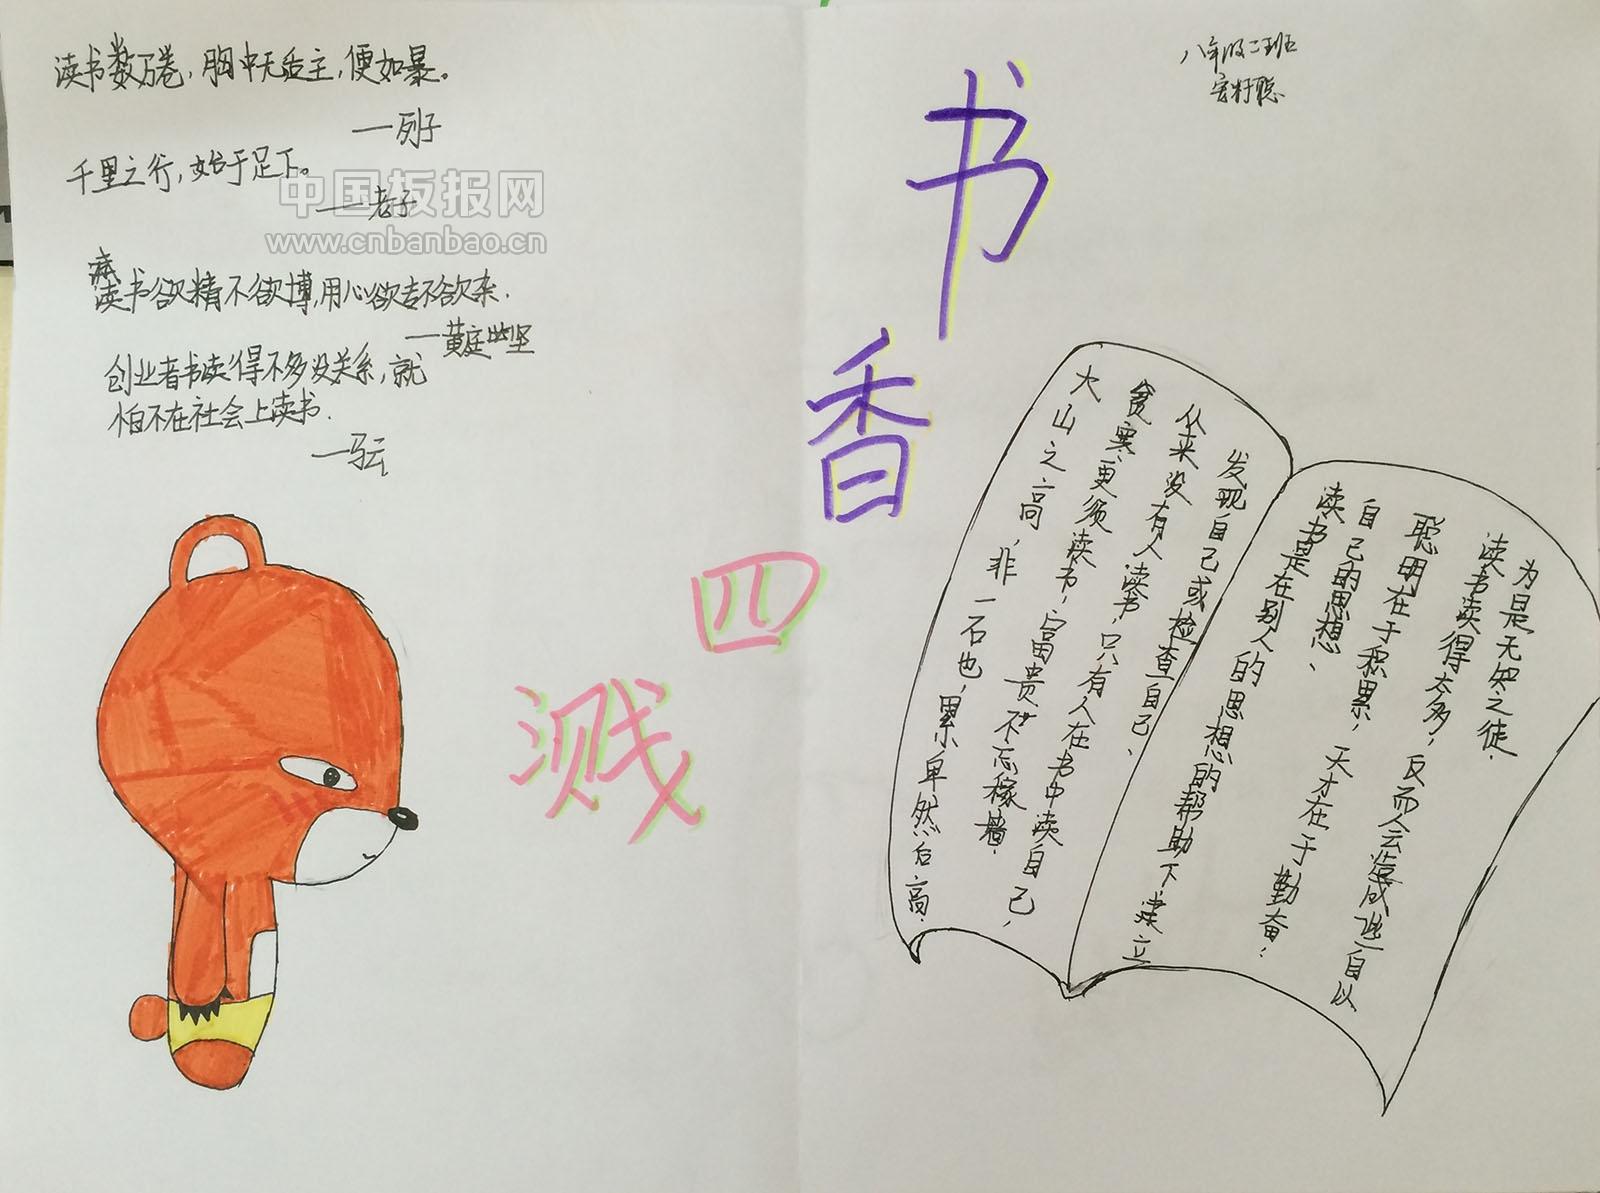 读书数万卷,胸中无适主,便如暴。
——列子
千里之行,始于足下。
——老子
读书欲精不欲博,用心欲专不欲杂.
——黄庭坚
创业者书读得不多没关系,就
怕不在社会上读书.
——马云
中国板报网
www.cnbanbao.cn
书香四溅
八年级二班
大山之高,非一石也,累卑然后高.
贫寒更须读书,富贵不忘稼墙.
从来没有人读书,只有人在书中读自己,
发现自己或检查自己、
读书是在别人的思想的帮助下,建立
自己的思想、
聪明在于积累,天才在于勤奋;
读书读得太多,反而会造成自以
为是无知之徒.